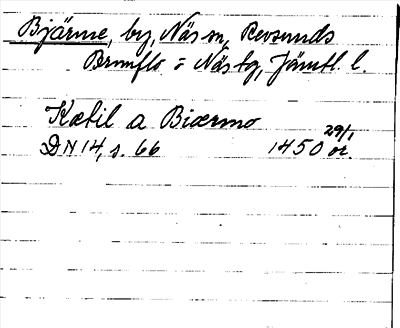 Bjärme, by, Näs sn, Revsunds
Brunflo = Näs tg, Jämtl. l.
Kætil a Biærmo
DN 14, s. 66 1450 29/1 or.